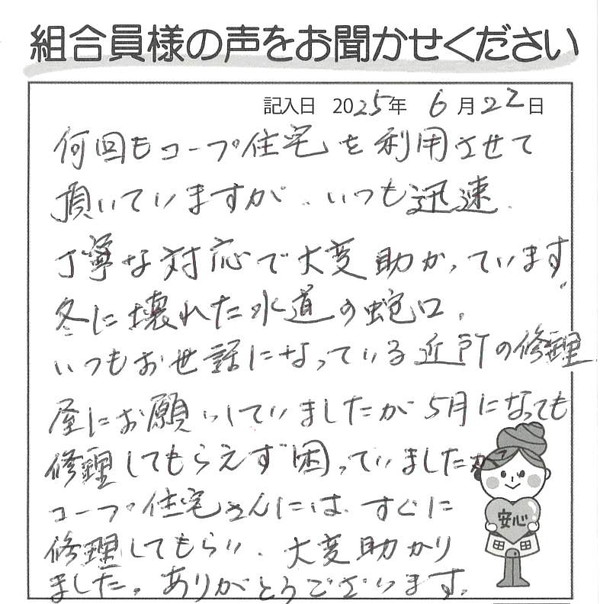 組合員様の声をお聞かせください
記入日 2025年 6月22日
何回もコープ住宅を利用させて
頂いていますが、いつも迅速、
丁寧な対応で大変助かっています
冬に壊れた水道の蛇口、
いつもお世話になっている近所の修理
屋にお願いしていましたが5月になっても
修理してもらえず困っていましたが
コープ住宅さんには、すぐに
修理してもらい、大変助かり
ました。ありがとうございます。
安心